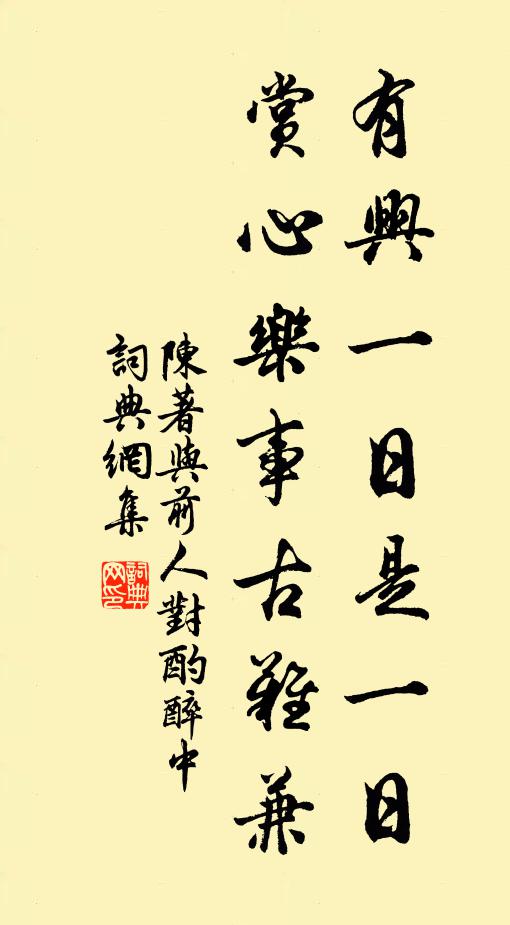 有興一日是一日
賞心樂事古難兼
陳著與前人對酌醉中
詞典網集
詞典网印